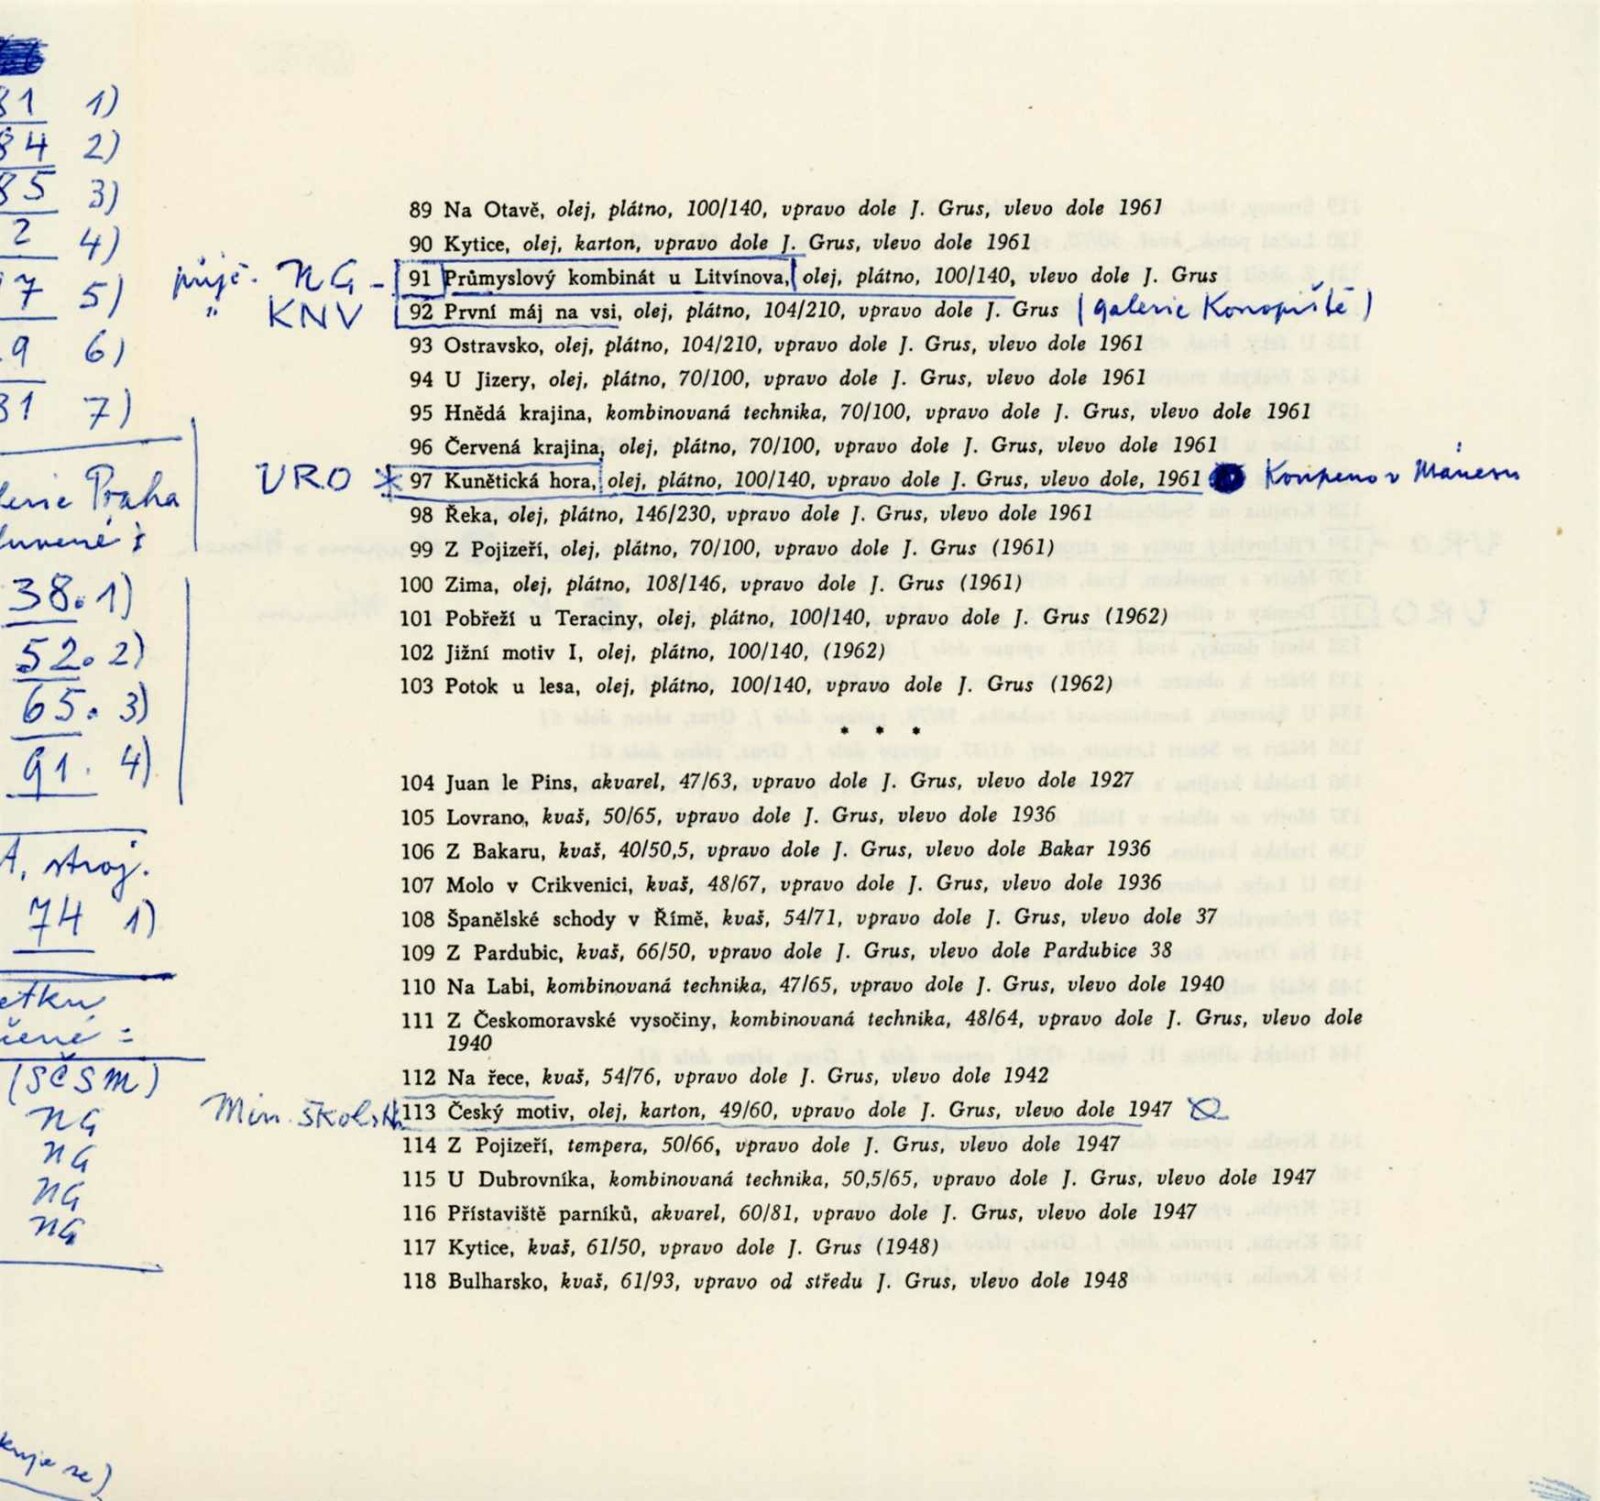 81 1)
84 2)
85 3)
2 4)
7 5)
9 6)
31 7)
erie Praha
luvené :
38. 1)
52. 2)
65. 3)
91. 4)
A, stroj.
74 1)
etku,
čené =
(SČSM)
NG
NG
NG
NG
kuje se)
89 Na Otavě, olej, plátno, 100/140, vpravo dole J. Grus, vlevo dole 1961
90 Kytice, olej, karton, vpravo dole J. Grus, vlevo dole 1961
půjč. NG - 91 Průmyslový kombinát u Litvínova, olej, plátno, 100/140, vlevo dole J. Grus
" KNV 92 První máj na vsi, olej, plátno, 104/210, vpravo dole J. Grus (galerie Konopiště)
93 Ostravsko, olej, plátno, 104/210, vpravo dole J. Grus, vlevo dole 1961
94 U Jizery, olej, plátno, 70/100, vpravo dole J. Grus, vlevo dole 1961
95 Hnědá krajina, kombinovaná technika, 70/100, vpravo dole J. Grus, vlevo dole 1961
96 Červená krajina, olej, plátno, 70/100, vpravo dole J. Grus, vlevo dole 1961
URO * 97 Kunětická hora, olej, plátno, 100/140, vpravo dole J. Grus, vlevo dole, 1961 Koupeno v Mánesu
98 Řeka, olej, plátno, 146/230, vpravo dole J. Grus, vlevo dole 1961
99 Z Pojizeří, olej, plátno, 70/100, vpravo dole J. Grus (1961)
100 Zima, olej, plátno, 108/146, vpravo dole J. Grus (1961)
101 Pobřeží u Teraciny, olej, plátno, 100/140, vpravo dole J. Grus (1962)
102 Jižní motiv I, olej, plátno, 100/140, (1962)
103 Potok u lesa, olej, plátno, 100/140, vpravo dole J. Grus (1962)
* * *
104 Juan le Pins, akvarel, 47/63, vpravo dole J. Grus, vlevo dole 1927
105 Lovrano, kvaš, 50/65, vpravo dole J. Grus, vlevo dole 1936
106 Z Bakaru, kvaš, 40/50,5, vpravo dole J. Grus, vlevo dole Bakar 1936
107 Molo v Crikvenici, kvaš, 48/67, vpravo dole J. Grus, vlevo dole 1936
108 Španělské schody v Římě, kvaš, 54/71, vpravo dole J. Grus, vlevo dole 37
109 Z Pardubic, kvaš, 66/50, vpravo dole J. Grus, vlevo dole Pardubice 38
110 Na Labi, kombinovaná technika, 47/65, vpravo dole J. Grus, vlevo dole 1940
111 Z Českomoravské vysočiny, kombinovaná technika, 48/64, vpravo dole J. Grus, vlevo dole
1940
112 Na řece, kvaš, 54/76, vpravo dole J. Grus, vlevo dole 1942
Min. školství 113 Český motiv, olej, karton, 49/60, vpravo dole J. Grus, vlevo dole 1947
114 Z Pojizeří, tempera, 50/66, vpravo dole J. Grus, vlevo dole 1947
115 U Dubrovníka, kombinovaná technika, 50,5/65, vpravo dole J. Grus, vlevo dole 1947
116 Přístaviště parníků, akvarel, 60/81, vpravo dole J. Grus, vlevo dole 1947
117 Kytice, kvaš, 61/50, vpravo dole J. Grus (1948)
118 Bulharsko, kvaš, 61/93, vpravo od středu J. Grus, vlevo dole 1948